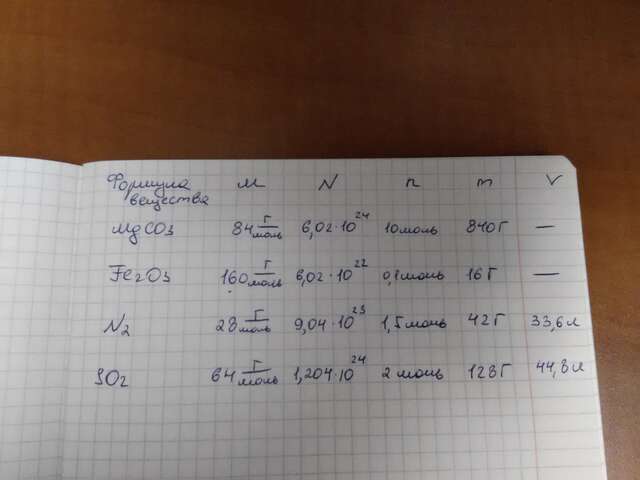 Формула вещества M N n m V
MgCO₃ 84 г/моль 6,02·10²⁴ 10 моль 840 г —
Fe₂O₃ 160 г/моль 6,02·10²² 0,1 моль 16 г —
N₂ 28 г/моль 9,04·10²³ 1,5 моль 42 г 33,6 л
SO₂ 64 г/моль 1,204·10²⁴ 2 моль 128 г 44,8 л